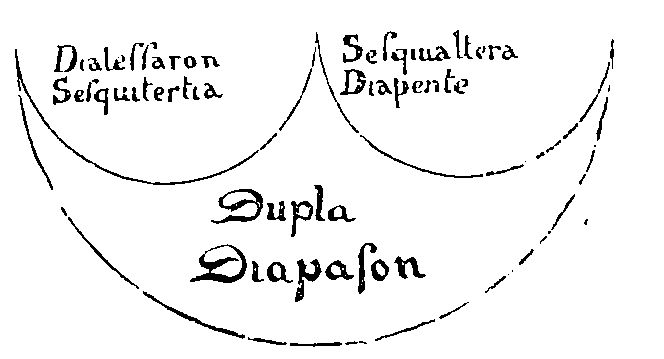 Diateſſaron
Seſquitertia
Seſquialtera
Diapente
Dupla
Diapaſon